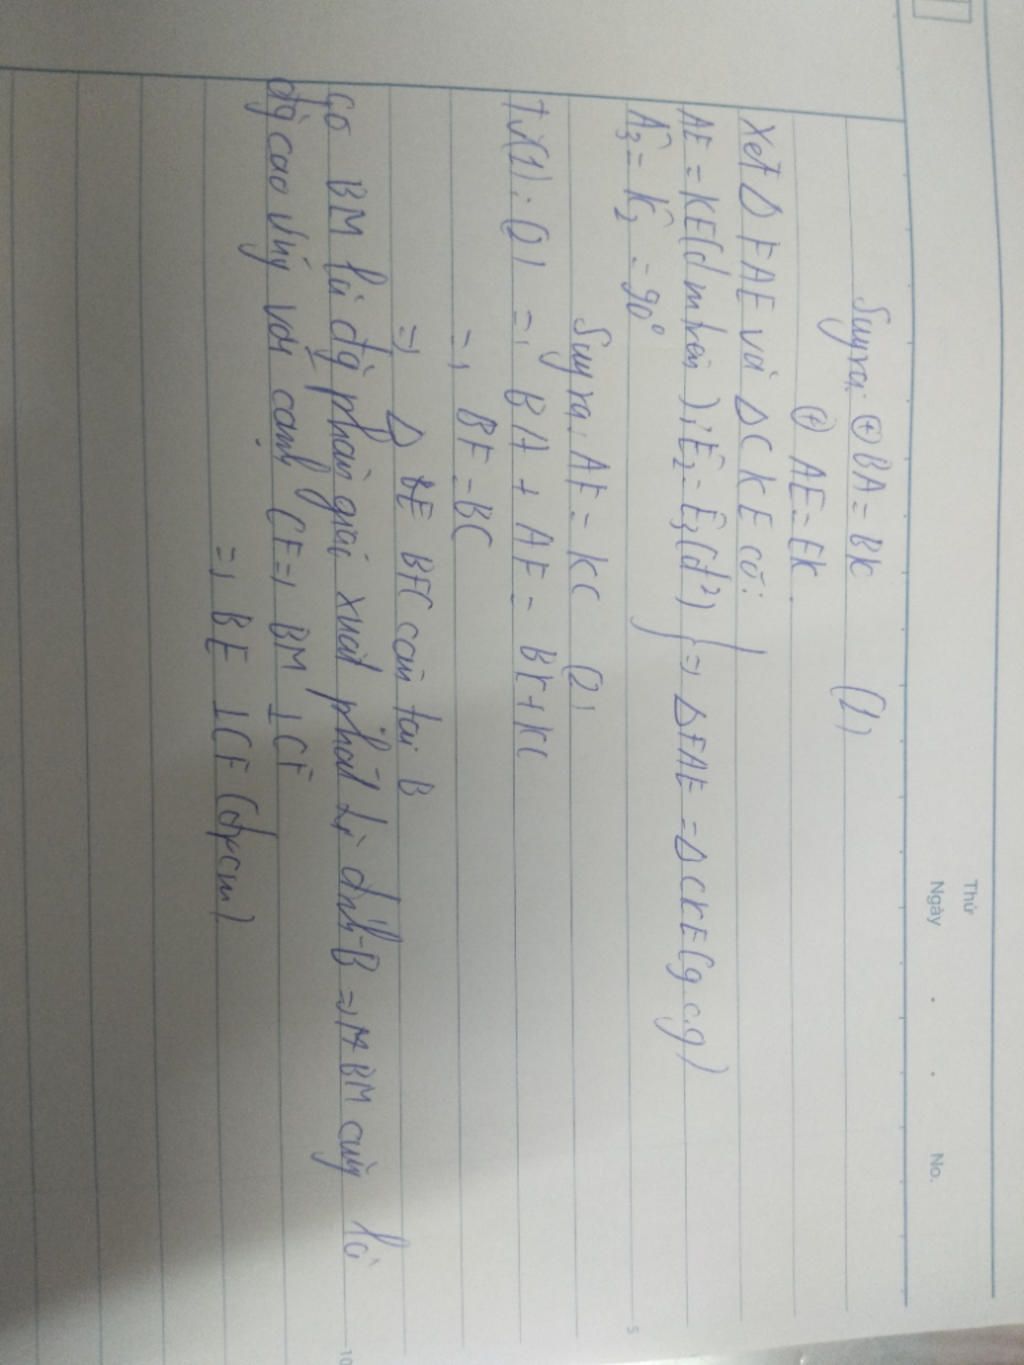 Thứ
Ngày . . No.
Suy ra: ⊕ BA = BK (1)
⊕ AE = EK.
Xét Δ FAE và Δ CKE có:
AE = KE (cmtrên); Ê₂ = Ê₃ (đ²) } => ΔFAE = ΔCKE (g.c.g)
Â₃ = K̂₂ = 90°
5
Suy ra: AF = KC (2)
Từ (1), (2) => BA + AF = BK + KC
=> BF = BC
=> Δ BFC cân tại B
Có BM là đg phân giác xuất phát từ đỉnh B => BM cũng là
10
đg cao ứng với cạnh CF => BM ⊥ CF
=> BE ⊥ CF (đpcm)